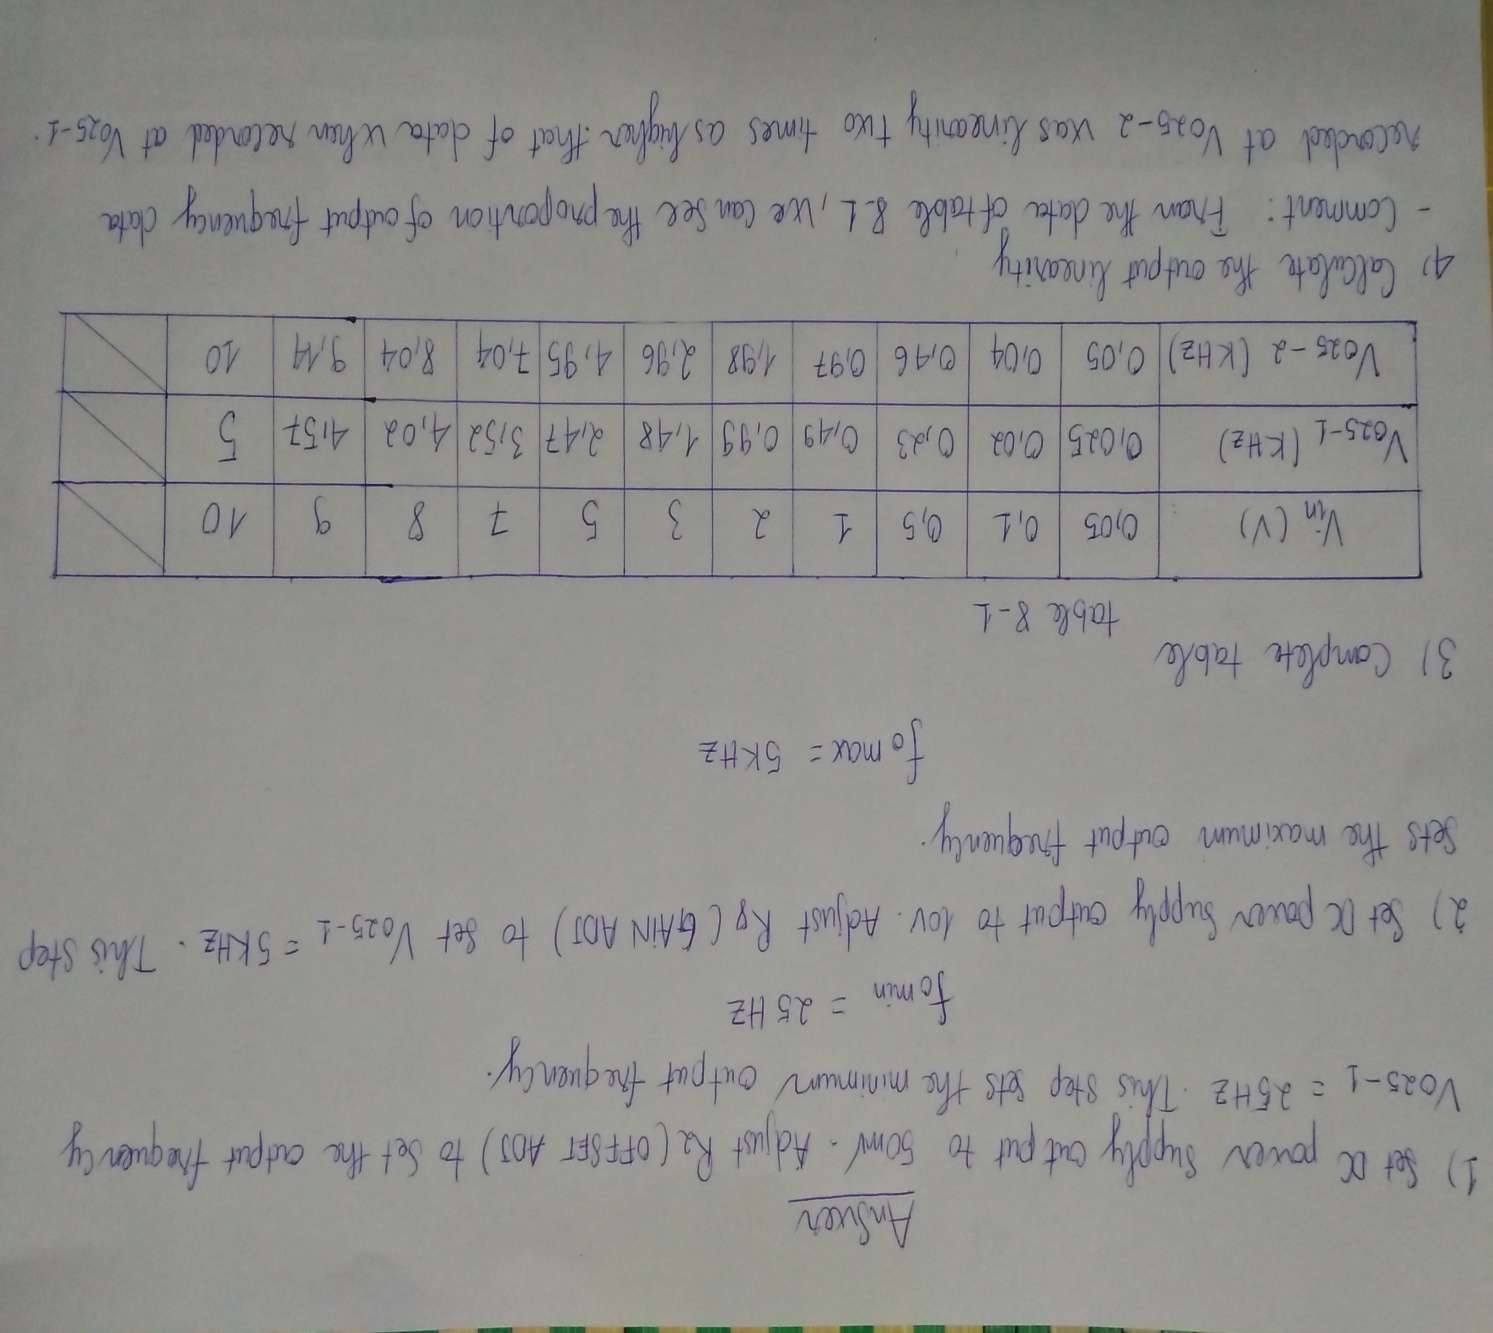 Answer
1) Set DC power supply output to 50mV. Adjust R2 (OFFSET ADJ) to set the output frequency
Vo25-1 = 25Hz. This step sets the minimum output frequency.
fo min = 25 Hz
2) Set DC power supply output to 10V. Adjust R8 (GAIN ADJ) to set Vo25-1 = 5KHz. This step
sets the maximum output frequency.
fo max = 5KHz
3) Complete table
table 8-1
Vin (V) 0,05 0,1 0,5 1 2 3 5 7 8 9 10
Vo25-1 (KHz) 0,025 0,02 0,23 0,49 0,99 1,48 2,47 3,52 4,02 4,57 5
Vo25-2 (KHz) 0,05 0,04 0,46 0,97 1,98 2,96 4,95 7,04 8,04 9,14 10
4) Calculate the output linearity
- Comment: From the data of table 8-1, we can see the proportion of output frequency data
recorded at Vo25-2 was linearity two times as higher that of data when recorded at Vo25-1.